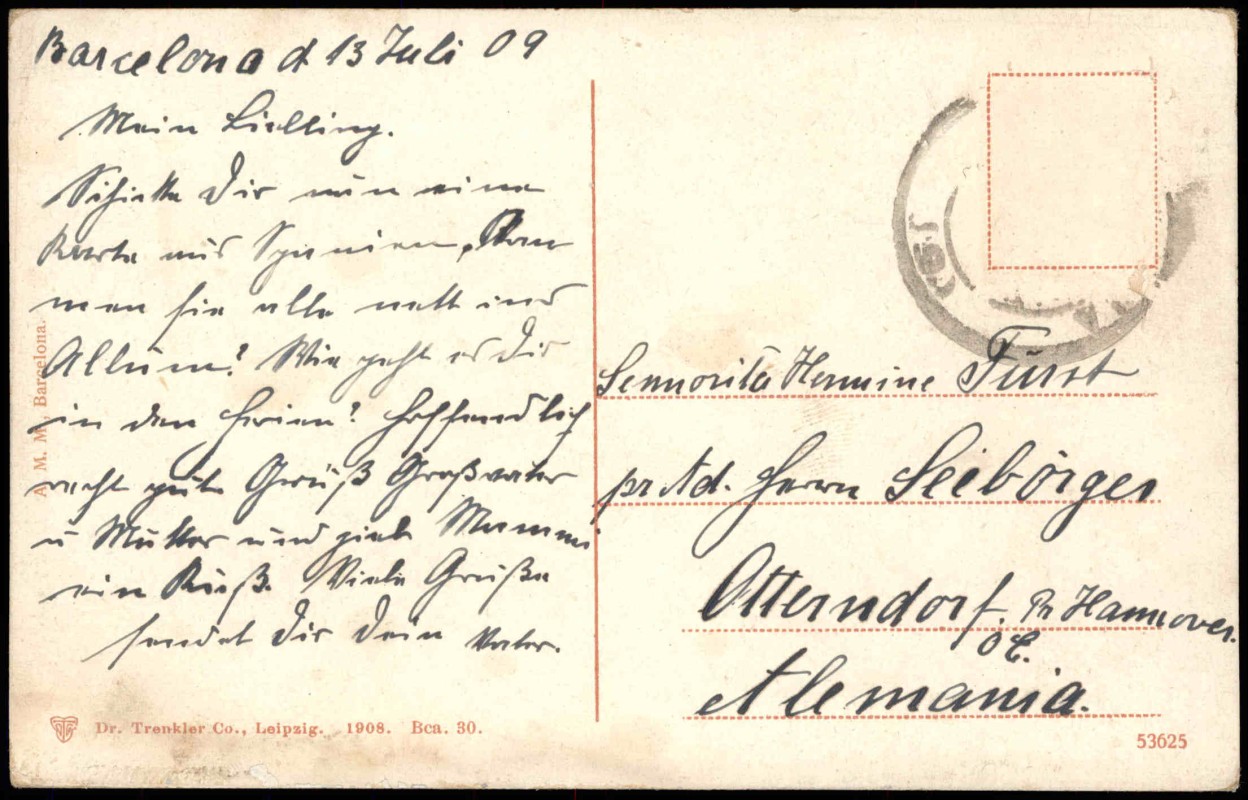 Barcelona d 13 Juli 09
Mein Liebling.
Schicke Dir nun eine
Karte aus Spanien, Kom
men sie alle nett ins
Album? Wie geht es Dir
in den Ferien? Hoffendlich
recht gut. Grüß Großvater
u Mutter und gieb Mamma
ein Kuß. Viele Grüße
sendet Dir Dein Vater.
Sennorita Hermine Fürst
pr Ad. Herrn Seibörger
Otterndorf. Pr Hannover.
Alemania.
A. M. M., Barcelona.
Dr. Trenkler Co., Leipzig. 1908. Bca. 30.
53625